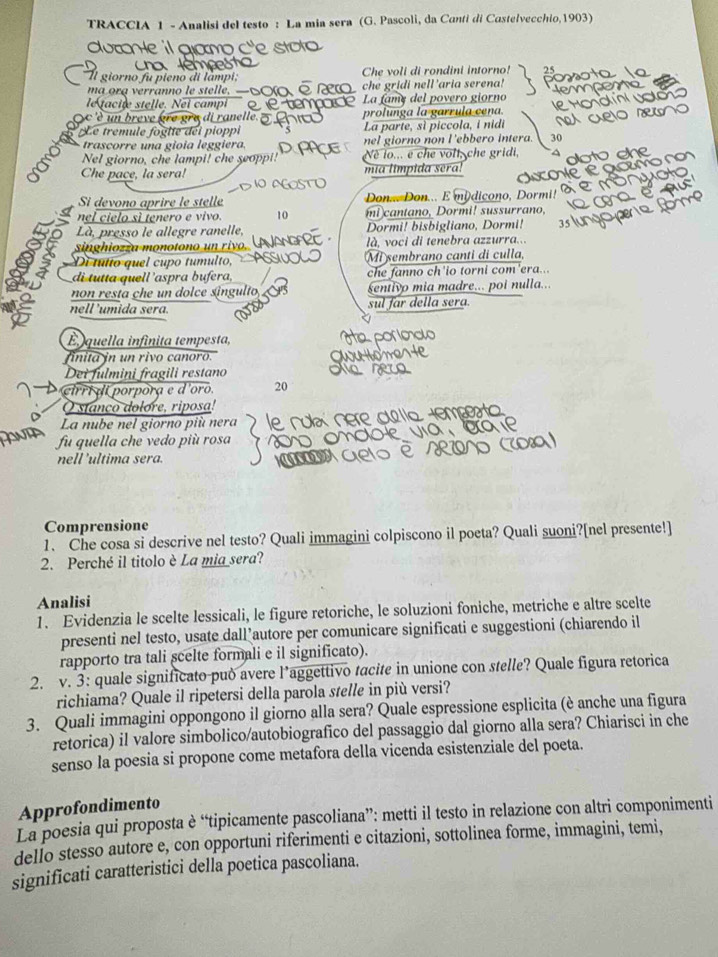 TRACCIA 1 - Analisi del testo : La mia sera (G. Pascoli, da Canti di Castelvecchio,1903)
durante il giorno c'è stata
una tempesta
Il giorno fu pieno di lampi;
ma ora verranno le stelle,
le tacite stelle. Nei campi
c'è un breve gre gre di ranelle.
Le tremule foglie dei pioppi
trascorre una gioia leggiera.
Nel giorno, che lampi! che scoppi!
Che pace, la sera!
ora è sera
e le tempeste
è finita
5
D. PACE
D 10 AGOSTO
Si devono aprire le stelle
nel cielo sì tenero e vivo.
10
Là, presso le allegre ranelle,
singhiozza monotono un rivo.
Di tutto quel cupo tumulto,
di tutta quell'aspra bufera,
non resta che un dolce singulto
nell'umida sera.
LAVANDARE
ASSIUOLO
È, quella infinita tempesta,
finita in un rivo canoro.
Dei fulmini fragili restano
cirri di porpora e d'oro.
20
O stanco dolore, riposa!
La nube nel giorno più nera
fu quella che vedo più rosa
nell'ultima sera.
le nubi nere della tempesta
sono andate via, ora le
cielo è sereno (rosa)
Che voli di rondini intorno!
25
che gridi nell'aria serena!
La fame del povero giorno
prolunga la garrula cena.
La parte, sì piccola, i nidi
nel giorno non l'ebbero intera.
30
Nè io... e che voli, che gridi,
mia limpida sera!
passata la
tempesta
le rondini volano
nel cielo sereno
dato che
durante il giorno non
è più
lunga per la fame
Don... Don... E mi dicono, Dormi!
mi cantano, Dormi! sussurrano,
Dormi! bisbigliano, Dormi!
35
là, voci di tenebra azzurra...
Mi sembrano canti di culla,
che fanno ch'io torni com'era...
sentivo mia madre... poi nulla...
sul far della sera.
sta parlando
direttamente
alla sera
Comprensione
1. Che cosa si descrive nel testo? Quali immagini colpiscono il poeta? Quali suoni?[nel presente!]
2. Perché il titolo è La mia sera?
Analisi
1. Evidenzia le scelte lessicali, le figure retoriche, le soluzioni foniche, metriche e altre scelte
presenti nel testo, usate dall'autore per comunicare significati e suggestioni (chiarendo il
rapporto tra tali scelte formali e il significato).
2. v. 3: quale significato può avere l'aggettivo tacite in unione con stelle? Quale figura retorica
richiama? Quale il ripetersi della parola stelle in più versi?
3. Quali immagini oppongono il giorno alla sera? Quale espressione esplicita (è anche una figura
retorica) il valore simbolico/autobiografico del passaggio dal giorno alla sera? Chiarisci in che
senso la poesia si propone come metafora della vicenda esistenziale del poeta.
Approfondimento
La poesia qui proposta è “tipicamente pascoliana”: metti il testo in relazione con altri componimenti
dello stesso autore e, con opportuni riferimenti e citazioni, sottolinea forme, immagini, temi,
significati caratteristici della poetica pascoliana.